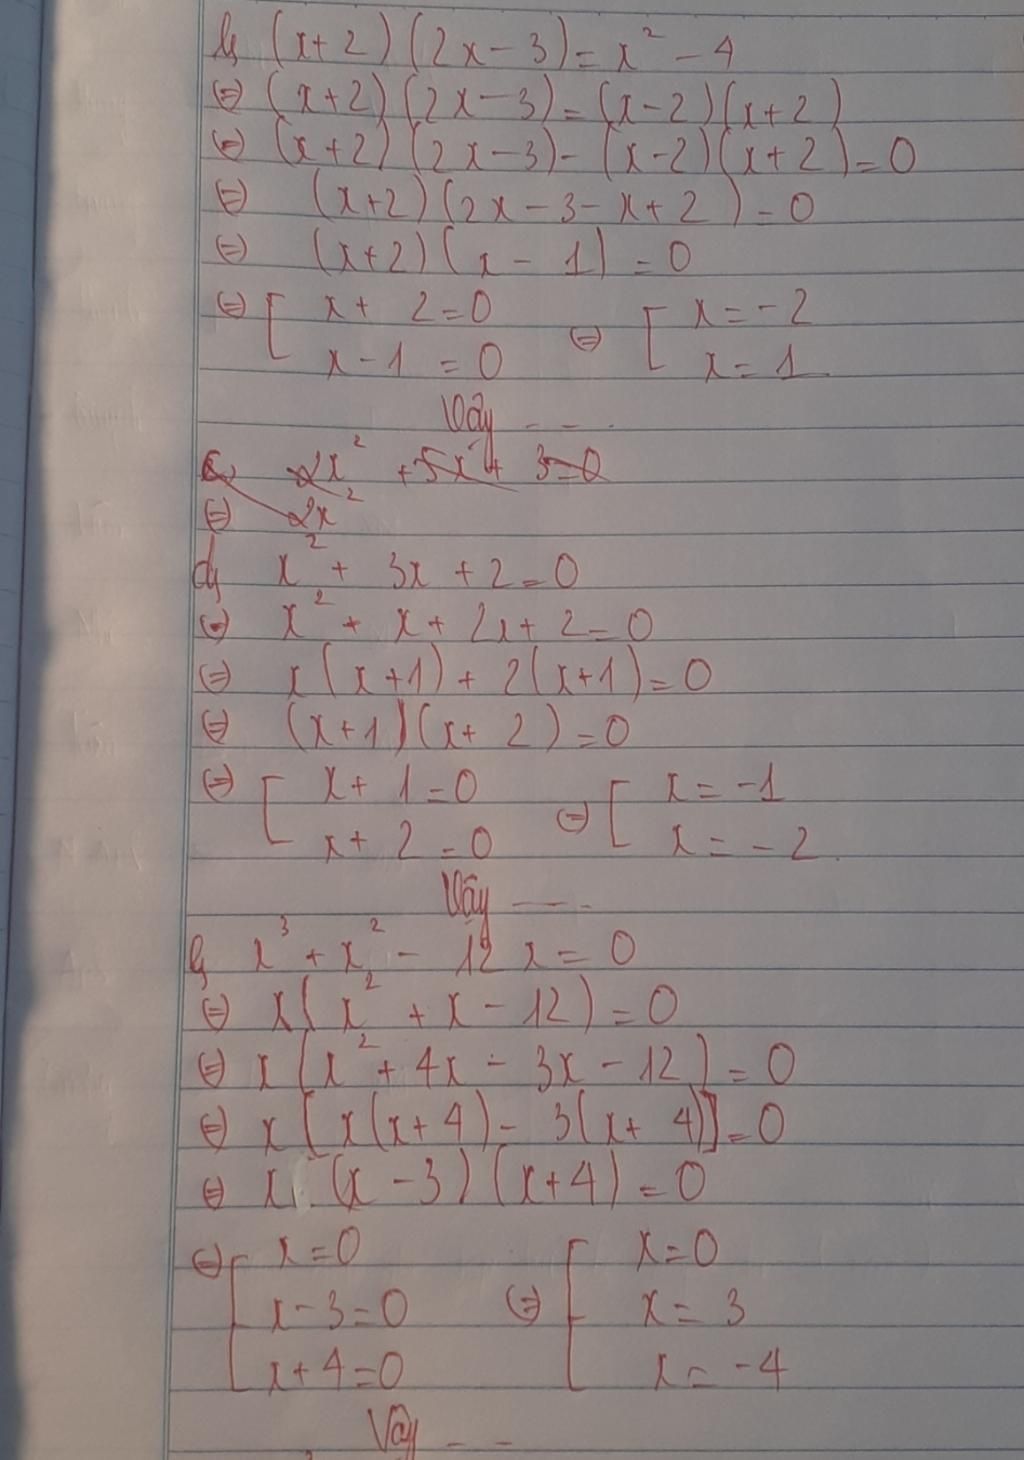 b, (x+2)(2x-3)=x² - 4
⇔ (x+2)(2x-3)=(x-2)(x+2)
⇔ (x+2)(2x-3)-(x-2)(x+2)=0
⇔ (x+2)(2x-3-x+2)=0
⇔ (x+2)(x-1)=0
⇔ [ x+2=0 ⇔ [ x=-2
x-1=0 x=1.
Vậy ---
c, 2x² +5x+3=0
⇔ 2x²
d, x² + 3x+2=0
⇔ x² + x+2x+2=0
⇔ x(x+1)+2(x+1)=0
⇔ (x+1)(x+2)=0
⇔ [ x+1=0 ⇔ [ x=-1
x+2=0 x=-2.
Vậy ---
x³+x² - 12x=0
⇔ x(x²+x-12)=0
⇔ x(x²+4x-3x-12)=0
⇔ x[x(x+4)-3(x+4)]=0
⇔ x.(x-3)(x+4)=0
⇔ [ x=0 [ x=0
x-3=0 ⇔ x=3
x+4=0 x=-4
Vậy --